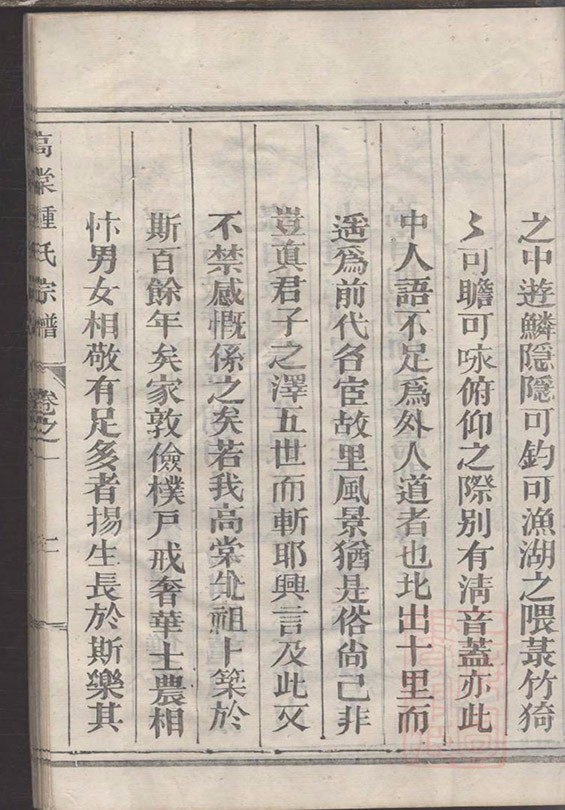 之中遊鱗隱隱可釣可漁湖之隈菉竹猗
〻可瞻可咏俯仰之際別有淸音蓋亦此
中人語不足爲外人道者也北出十里而
遥爲前代名宦故里風景猶是俗尙已非
豈眞君子之澤五世而斬耶興言及此又
不禁感慨係之矣若我高棠先祖卜築於
斯百餘年矣家敦儉樸戸戒奢華士農相
忭男女相敬有足多者揚生長於斯樂其
高棠鍾氏宗譜
卷之一
二